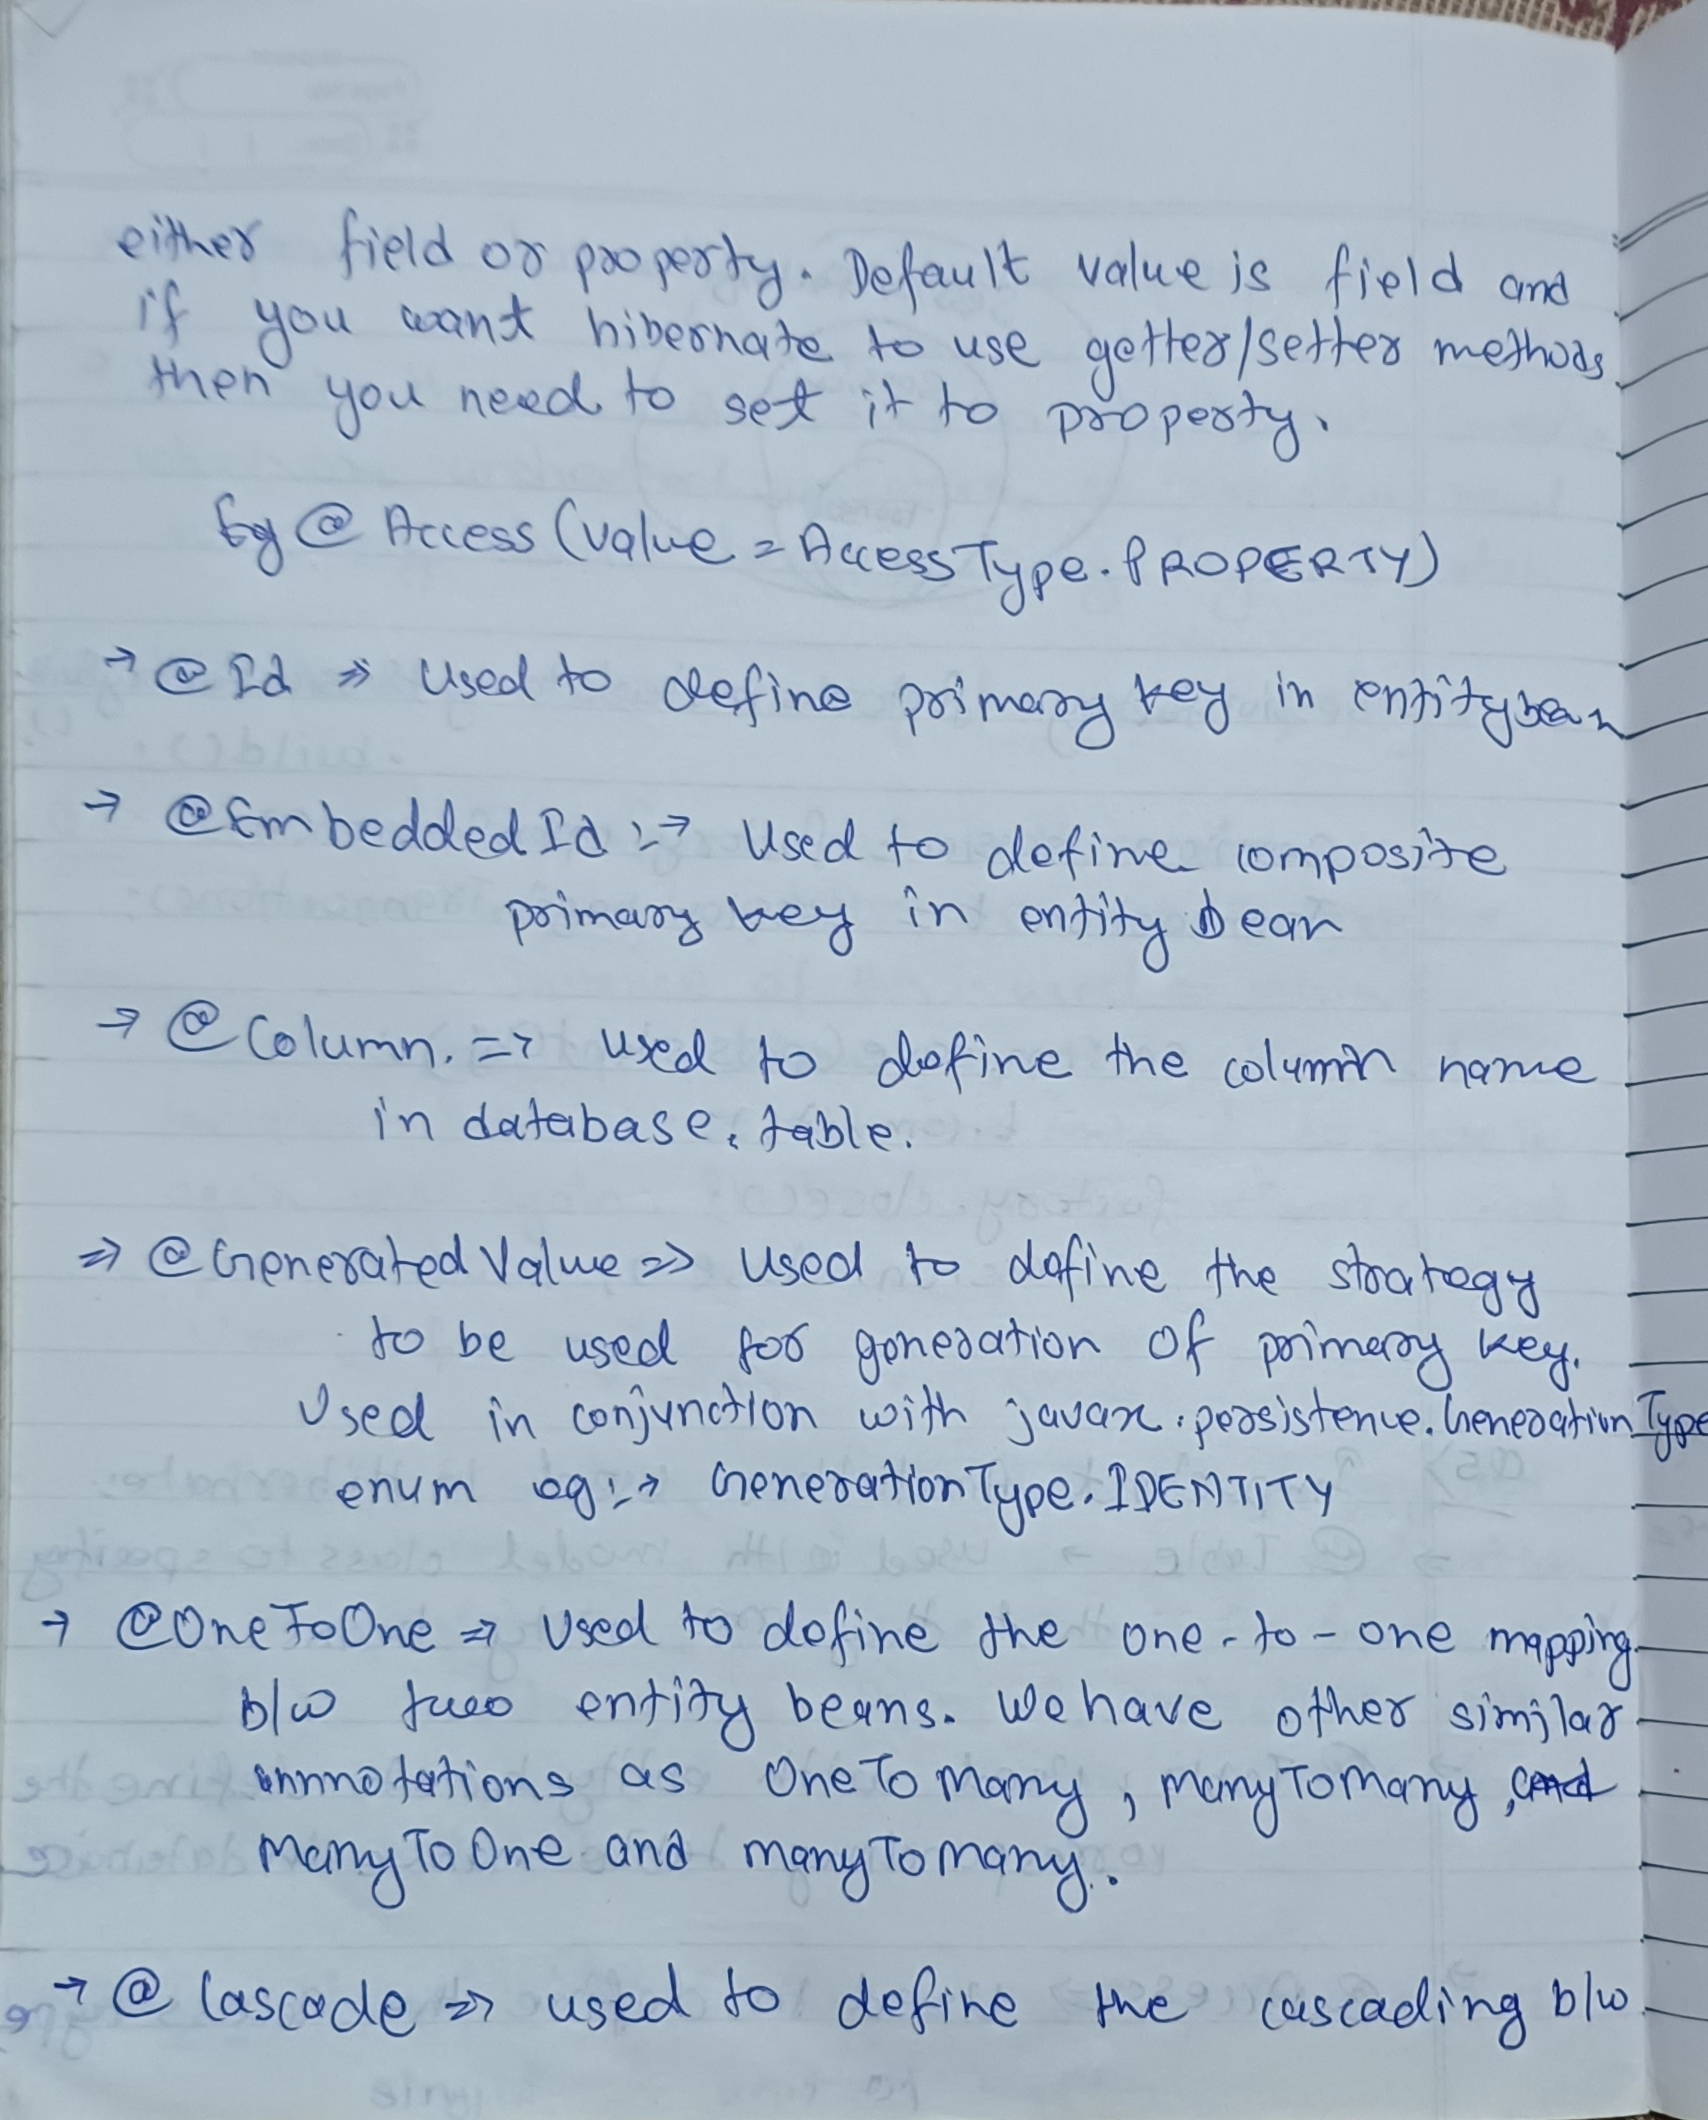 either field or property. Default value is field and
if you want hibernate to use getter/setter methods
then you need to set it to property.
Eg @ Access (value = AccessType.PROPERTY)
→ @ Id ⇒ Used to define primary key in entitybean
→ @EmbeddedId :→ Used to define composite
primary key in entity bean
→ @ Column. => used to define the column name
in database. table.
⇒ @GeneratedValue => used to define the strategy
to be used for generation of primary key.
Used in conjunction with javax.persistence.GenerationType
enum eg :→ GenerationType.IDENTITY
→ @OneToOne => Used to define the one-to-one mapping
b/w two entity beans. We have other similar
annnotations as OneToMany, ManyToMany, and
ManyToOne and manyTomany.
→ @ Cascade => used to define the cascading b/w